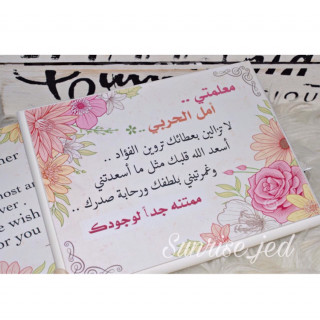 معلمتي ..
أمل الحربي ..
لا تزالين بعطائك تروين الفؤاد ..
أسعد الله قلبك مثل ما أسعدتني
وغمرتيني بلطفك ورحابة صدرك ..
ممتنه جداً لوجودك
her
ost an
er .
e wish
or you
Sunrise.jed